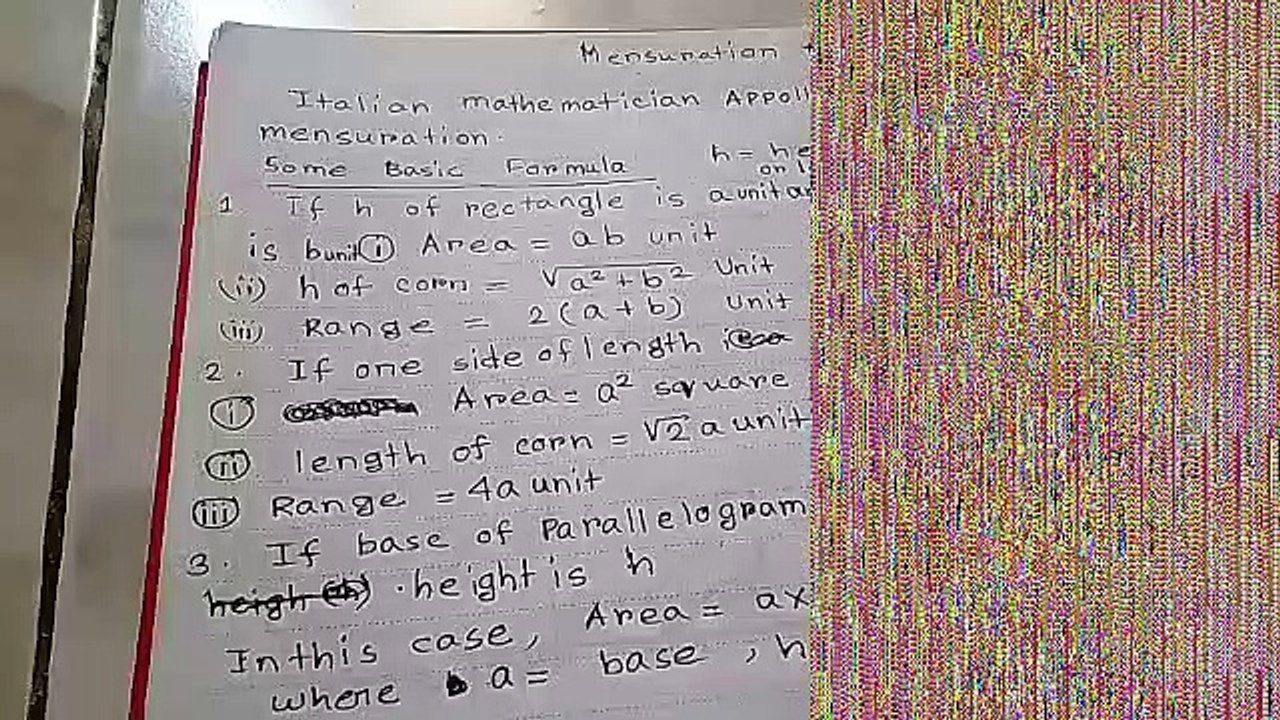 Mensuration
Italian mathematician APPoll
mensuration.
h = he
Some Basic Formula
on l
1. If h of rectangle is a unit an
is b unit (i) Area = ab unit
(ii) h of corn = √a²+b² Unit
(iii) Range = 2(a+b) unit
2. If one side of length
(i) Area = a² square
(ii) length of corn = √2 a unit
(iii) Range = 4a unit
3. If base of Parallelogram
heigh (h) . height is h
In this case, Area = ax
where a = base , h